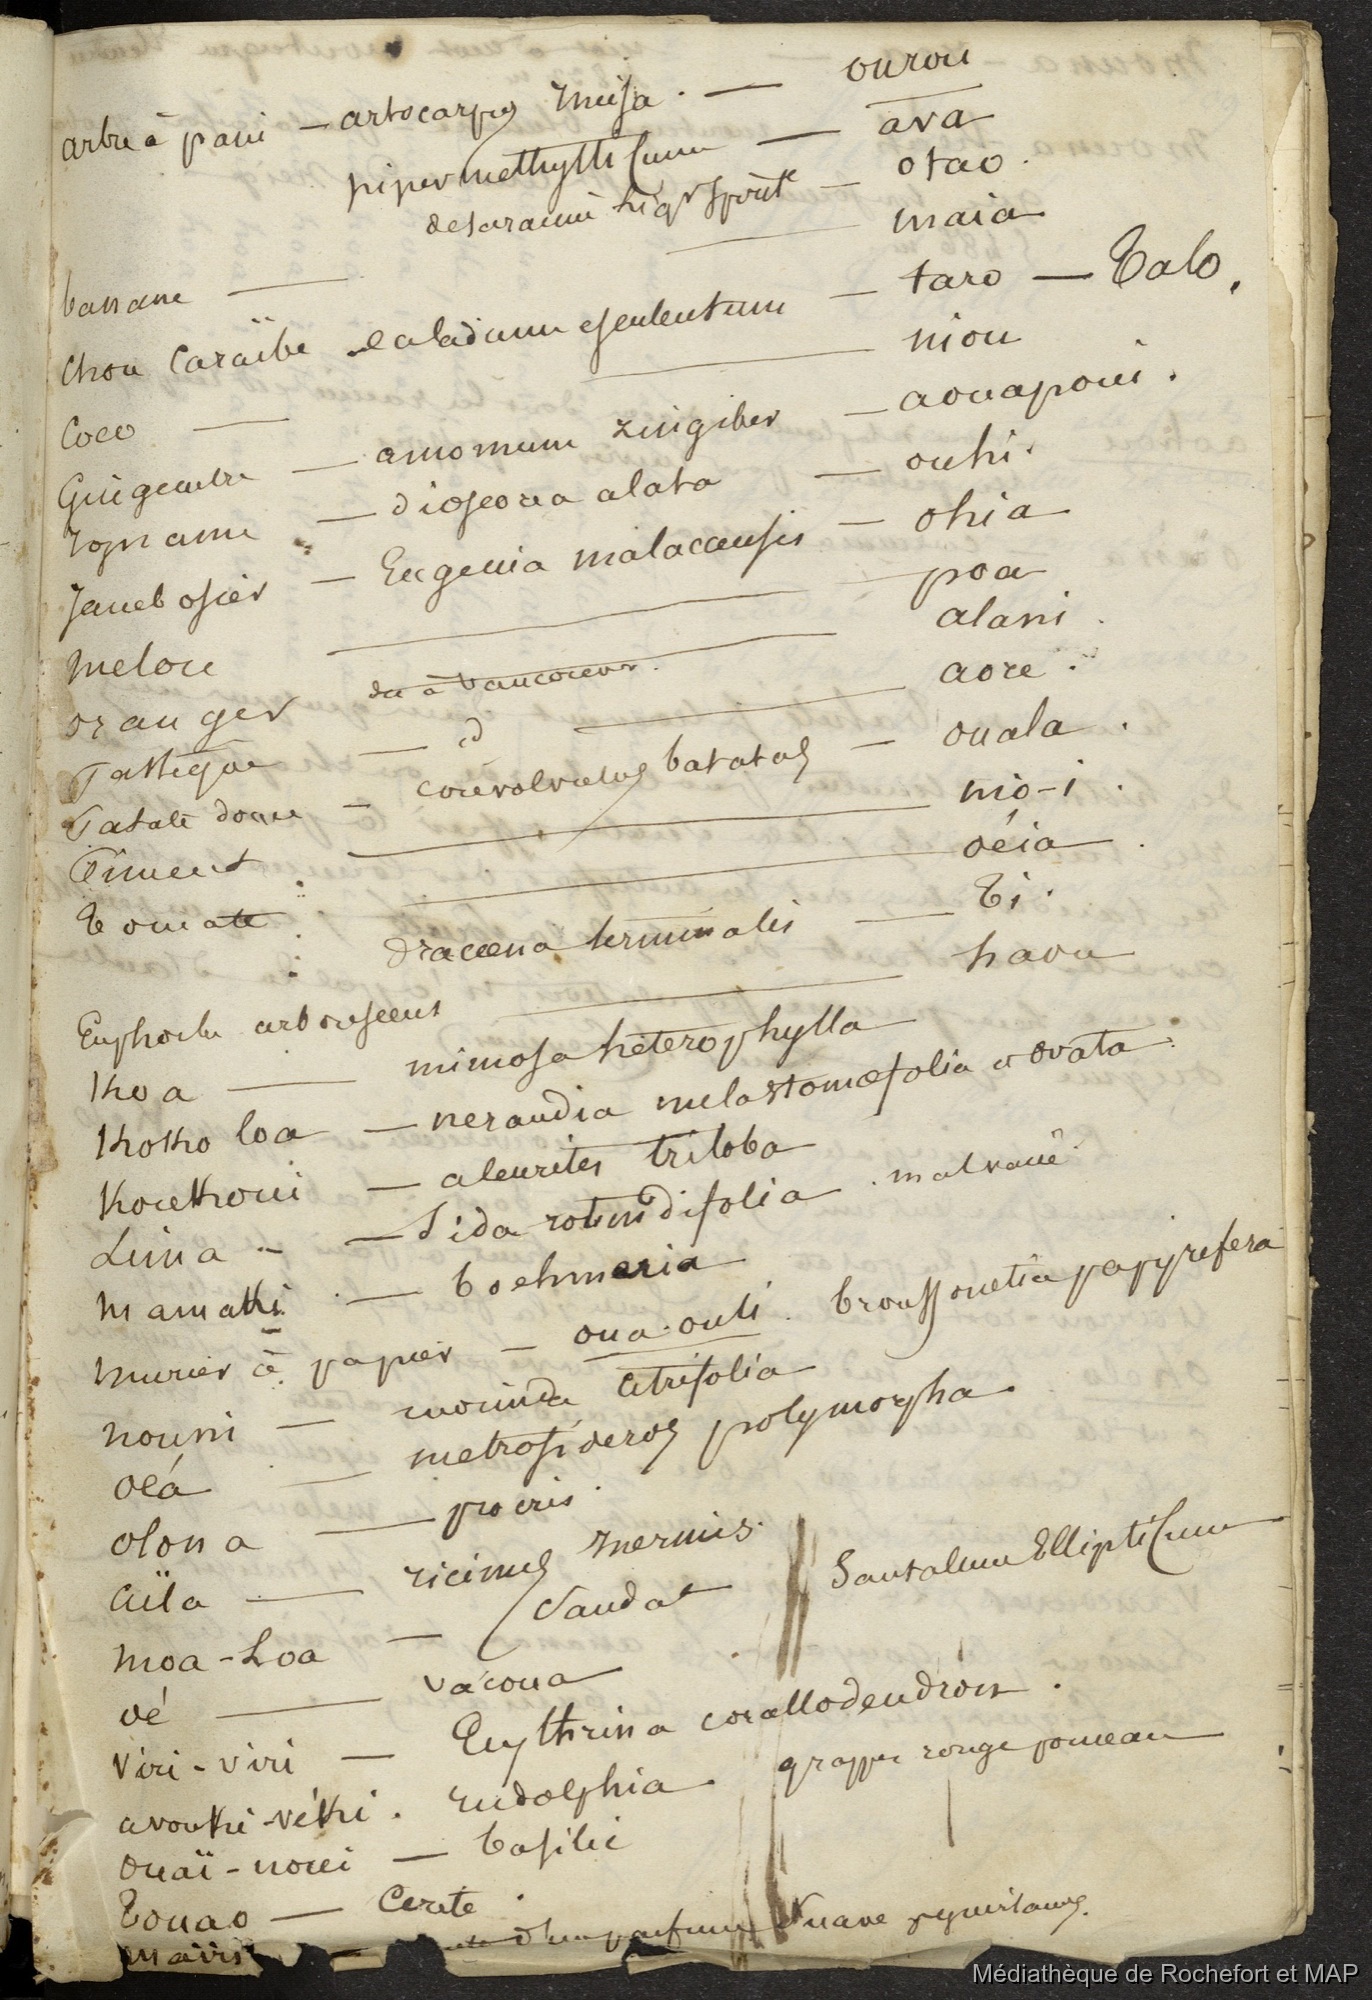 arbre à pain — artocarpus incisa. — ourou
piper methysticum — ava
de la racine liqr spirite — otao.
banane — maia
chou Caraïbe — caladium esculentum — taro — Talo.
Coco — niou
Gingembre — amomum zingiber — aouapoui.
Igname — dioscorea alata — ouhi.
Jambosier — Eugenia malaccensis — ohia
melon — poa
oranger du à vancouver. alani.
Pastèque — id aore.
Patate douce — convolvulus batatas — ouala.
Piment — nio-i.
Tomate — oéia.
dracœna terminalis — Ti.
Euphorbe arborescent — havu
Koa — mimosa heterophylla
Kokoloa — neraudia melastomœfolia et ovata.
Koukoui — aleurites triloba
Lima — Sida rotundifolia. malvacée.
mamaki — boehmeria
murier à papier — oua-outi. broussonetia papyrefera
nouni — morinda citrifolia
oéa — metrosideros polymorpha.
olona — procris.
aïla — ricinus inermis.
moa-Loa — Sandal Santalum Ellipticum
vé — vacoua
viri-viri — Erythrina corallodendron.
avouki-véki. rudolphia grappes rouge ponceau
ouaï-noui — basilic
Touao — Cerite.
mairi — d'un parfum suave